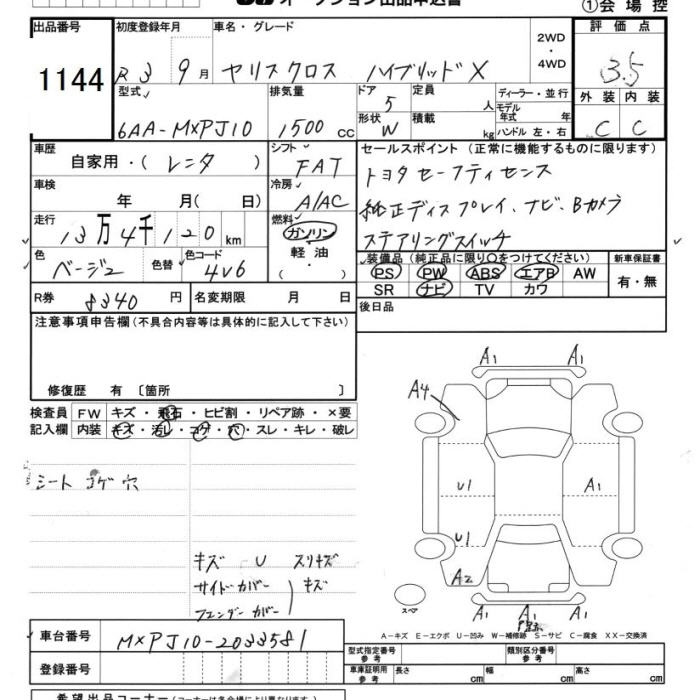 オークション出品申込書
①会場控
出品番号 1144
初度登録年月 R3 9月
車名・グレード ヤリスクロス ハイブリッドX
2WD・4WD
評価点 3.5
型式 6AA-MXPJ10
排気量 1500cc
ドア 5
形状 W
定員 人
積載 kg
ディーラー・並行
モデル年式 年式
ハンドル 左・右
外装 C
内装 C
車歴 自家用・(レンタ)
シフト FAT
車検 年 月(日)
冷房 A/AC
走行 13万4千120km
燃料 ガソリン・軽油・( )
色 ベージュ
色替
色コード 4V6
R券 8340円
名変期限 月 日
セールスポイント(正常に機能するものに限ります)
トヨタセーフティセンス
純正ディスプレイ、ナビ、Bカメラ
ステアリングスイッチ
装備品(純正品に限り○をつけてください)
PS PW ABS エアB AW
SR ナビ TV カワ
新車保証書
有・無
後日品
注意事項申告欄(不具合内容等は具体的に記入して下さい)
修復歴 有〔箇所 〕
検査員記入欄
FW キズ・飛石・ヒビ割・リペア跡・×要
内装 キズ・汚レ・コゲ・穴・スレ・キレ・破レ
シート コゲ穴
キズ U スリキズ
サイドカバー キズ
フェンダーカバー
A1 A1
A4
U1 A1
U1
A2
A1 A1 A1
スペア
A-キズ E-エクボ U-凹み W-補修跡 S-サビ C-腐食 XX-交換済
車台番号 MXPJ10-2033581
登録番号
型式指定番号 参考
類別区分番号 参考
車庫証明用 参考 長さ cm 幅 cm 高さ cm
希望出品コーナー(コーナーは各会場により異なります)